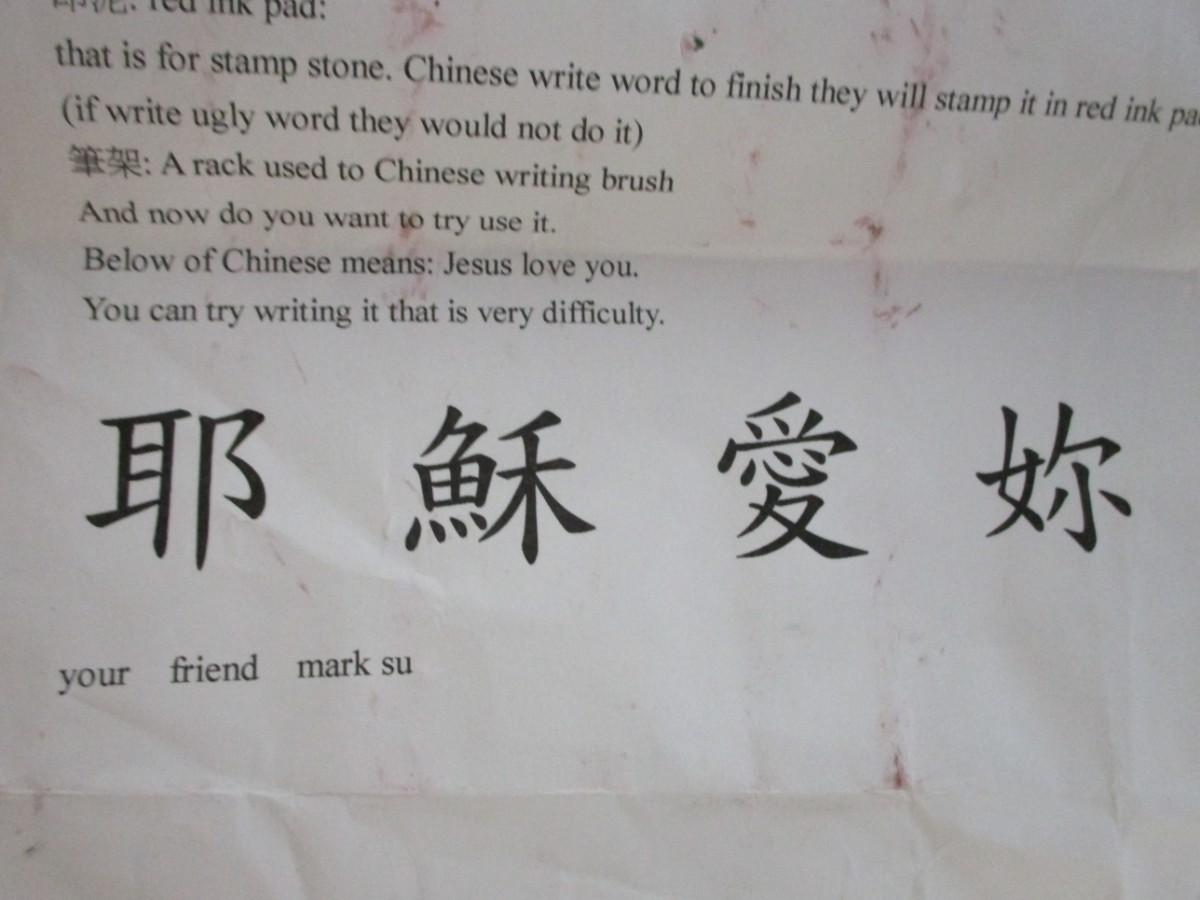 印泥: red ink pad:
that is for stamp stone. Chinese write word to finish they will stamp it in red ink
(if write ugly word they would not do it)
筆架: A rack used to Chinese writing brush
And now do you want to try use it.
Below of Chinese means: Jesus love you.
You can try writing it that is very difficulty.
耶 穌 愛 妳
your friend mark su